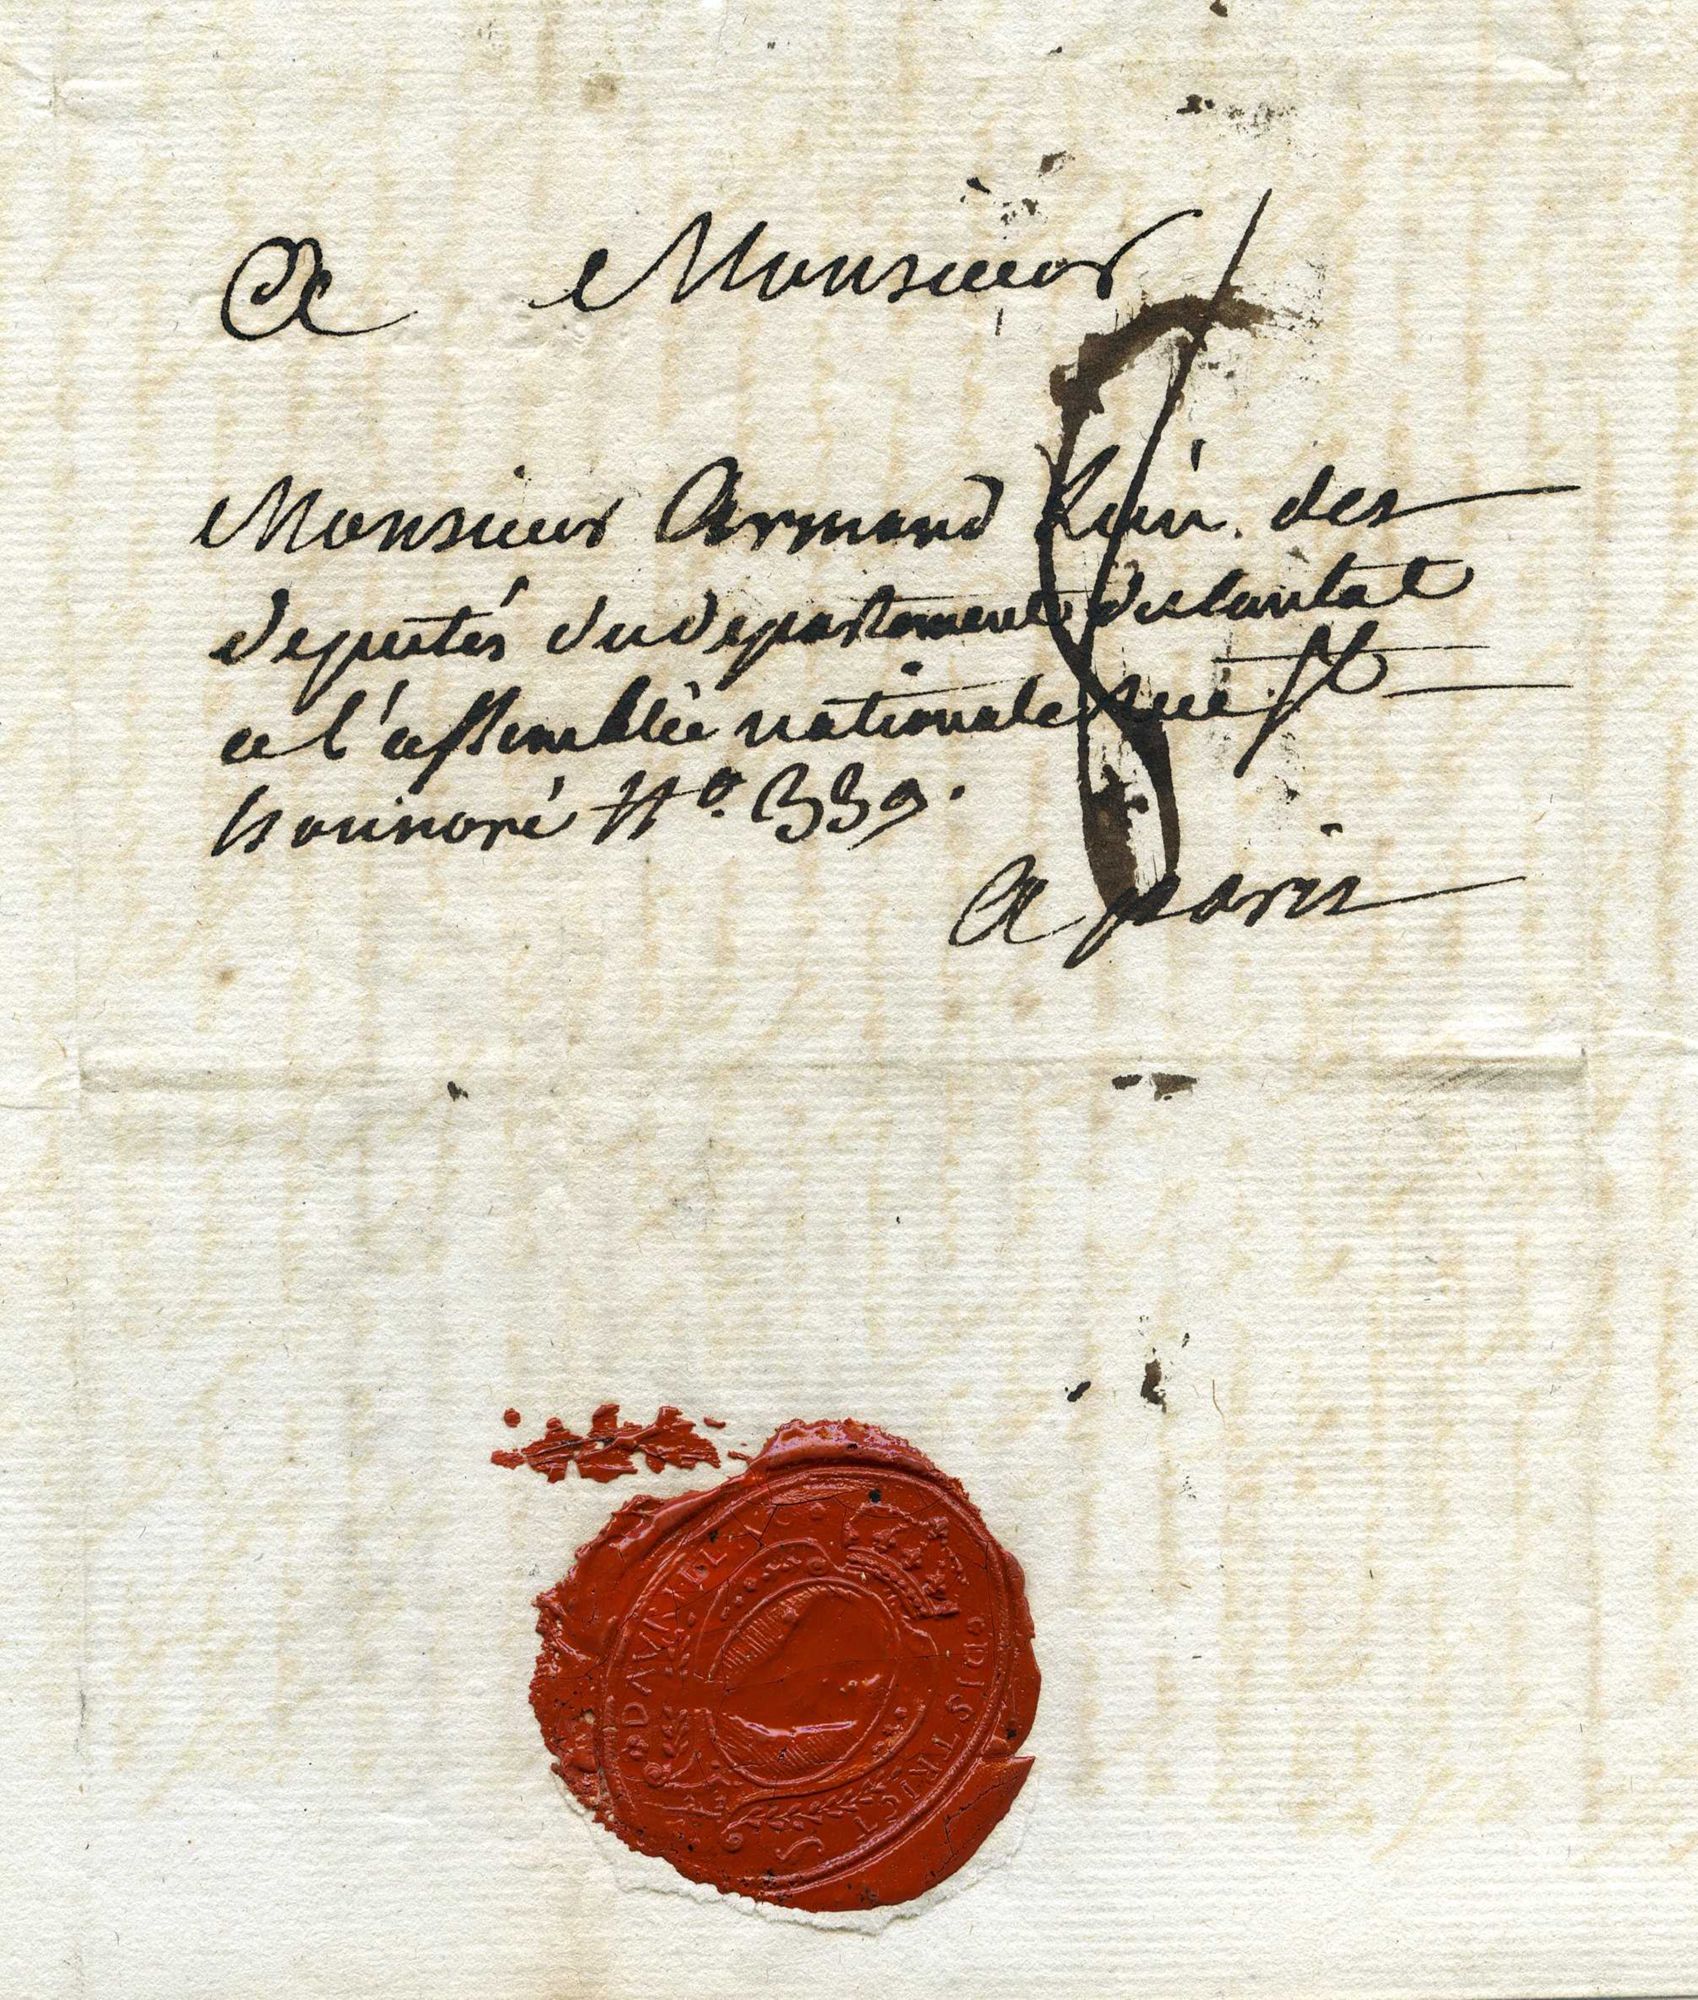 A Monsieur
Monsieur Armand l'un des
deputés du departement du Cantal
a l'assemblée nationale rue St
honnoré N° 339.
A paris
DISTRICT
DAVRILL